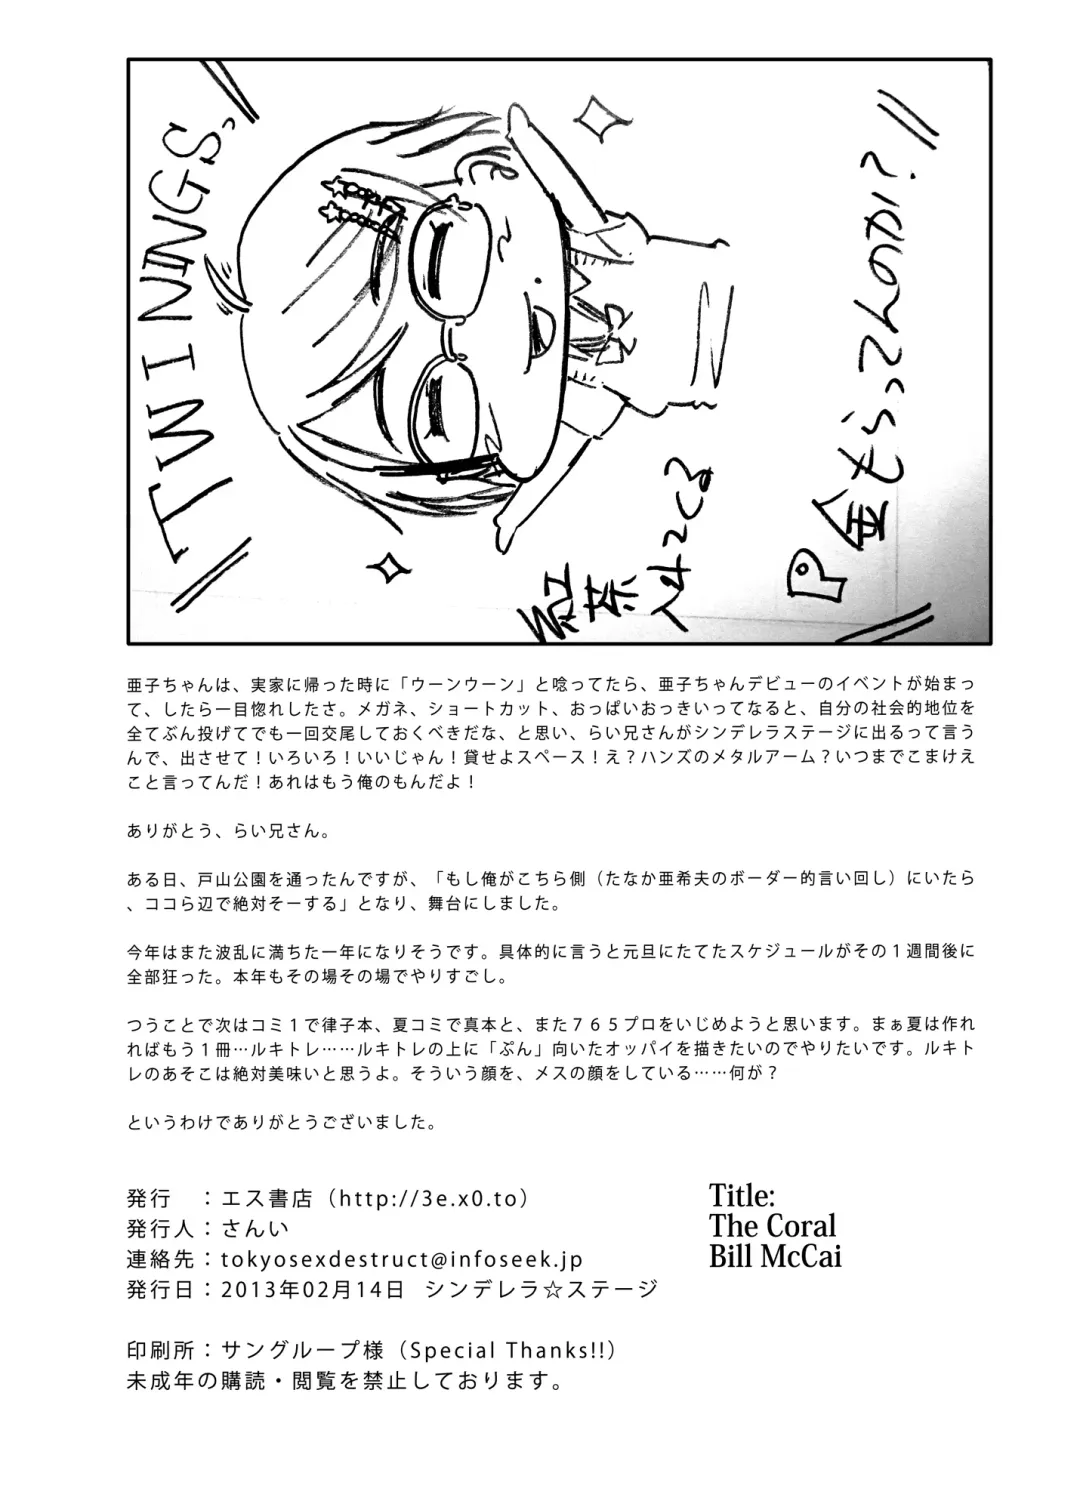 TWININGS っ
紅茶 入ってくる
P 金もらってんのか?
亜子ちゃんは、実家に帰った時に「ウーンウーン」と唸ってたら、亜子ちゃんデビューのイベントが始まっ
て、したら一目惚れしたさ。メガネ、ショートカット、おっぱいおっきいってなると、自分の社会的地位を
全てぶん投げてでも一回交尾しておくべきだな、と思い、らい兄さんがシンデレラステージに出るって言う
んで、出させて!いろいろ!いいじゃん!貸せよスペース!え?ハンズのメタルアーム?いつまでこまけえ
こと言ってんだ!あれはもう俺のもんだよ!
ありがとう、らい兄さん。
ある日、戸山公園を通ったんですが、「もし俺がこちら側(たなか亜希夫のボーダー的言い回し)にいたら
、ココら辺で絶対そーする」となり、舞台にしました。
今年はまた波乱に満ちた一年になりそうです。具体的に言うと元旦にたてたスケジュールがその1週間後に
全部狂った。本年もその場その場でやりすごし。
つうことで次はコミ1で律子本、夏コミで真本と、また765プロをいじめようと思います。まぁ夏は作れ
ればもう1冊…ルキトレ……ルキトレの上に「ぷん」向いたオッパイを描きたいのでやりたいです。ルキト
レのあそこは絶対美味いと思うよ。そういう顔を、メスの顔をしている……何が?
というわけでありがとうございました。
発行 :エス書店(http://3e.x0.to)
発行人:さんい
連絡先:tokyosexdestruct@infoseek.jp
発行日:2013年02月14日 シンデレラ☆ステージ
印刷所:サングループ様(Special Thanks!!)
未成年の購読・閲覧を禁止しております。
Title:
The Coral
Bill McCai